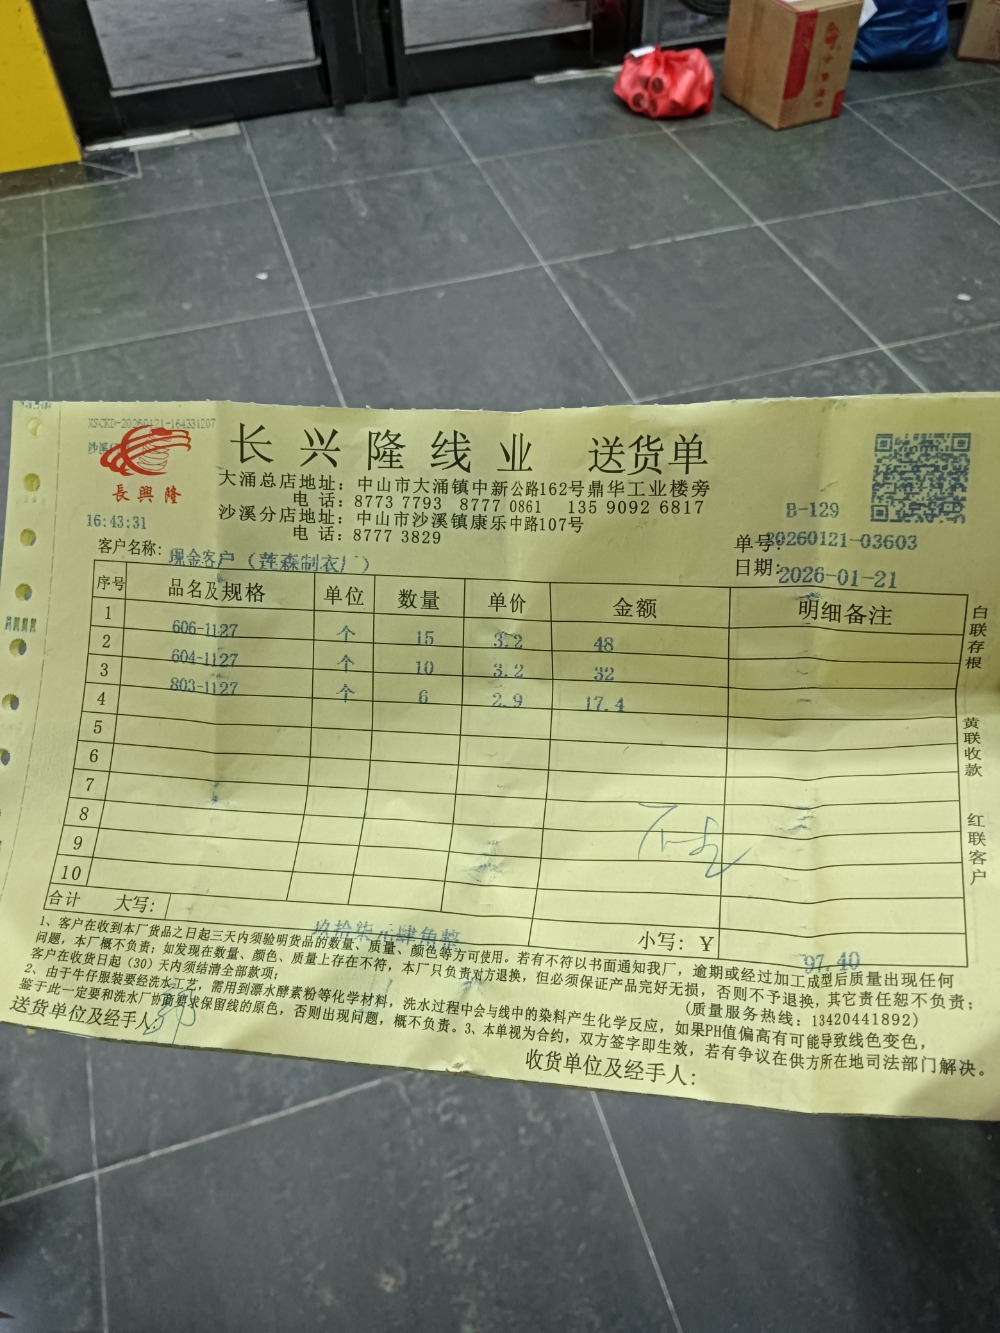 XSCKD-20260121-164331207
长兴隆线业 送货单
長興隆
大涌总店地址：中山市大涌镇中新公路162号鼎华工业楼旁
电 话：8773 7793 8777 0861 135 9092 6817
沙溪分店地址：中山市沙溪镇康乐中路107号
电 话：8777 3829
16:43:31
B-129
单号:20260121-03603
客户名称：现金客户（莲森制衣厂）
日期:2026-01-21
序号 品名及规格 单位 数量 单价 金额 明细备注
1 606-1127 个 15 3.2 48
2 604-1127 个 10 3.2 32
3 803-1127 个 6 2.9 17.4
4
5
6
7
8
9
10
合计 大写：玖拾柒元肆角整 小写：￥ 97.40
白联存根
黄联收款
红联客户
1、客户在收到本厂货品之日起三天内须验明货品的数量、质量、颜色等方可使用。若有不符以书面通知我厂，逾期或经过加工成型后质量出现任何
问题，本厂概不负责；如发现在数量、颜色、质量上存在不符，本厂只负责对方退换，但必须保证产品完好无损，否则不予退换，其它责任恕不负责；
客户在收货日起（30）天内须结清全部款项；
(质量服务热线：13420441892)
2、由于牛仔服装要经洗水工艺，需用到漂水酵素粉等化学材料，洗水过程中会与线中的染料产生化学反应，如果PH值偏高有可能导致线色变色，
鉴于此一定要和洗水厂协商要求保留线的原色，否则出现问题，概不负责。3、本单视为合约，双方签字即生效，若有争议在供方所在地司法部门解决。
送货单位及经手人：
收货单位及经手人：